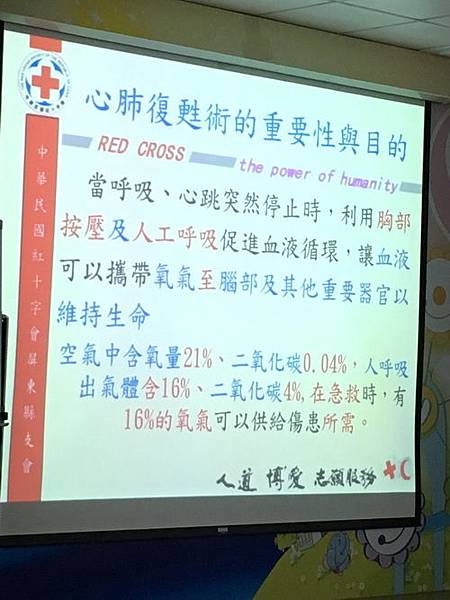 心肺復甦術的重要性與目的
RED CROSS
the power of humanity
當呼吸、心跳突然停止時，利用胸部
按壓及人工呼吸促進血液循環，讓血液
可以攜帶氧氣至腦部及其他重要器官以
維持生命
空氣中含氧量21%、二氧化碳0.04%，人呼吸
出氣體含16%、二氧化碳4%,在急救時，有
16%的氧氣可以供給傷患所需。
人道 博愛 志願服務
中華民國紅十字會屏東縣支會